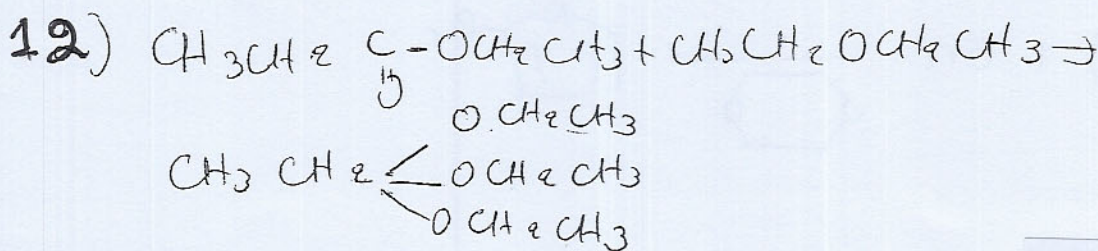 12) CH3CH2 C-OCH2CH3 + CH3CH2OCH2CH3 →
O
O.CH2CH3
CH3CH2 OCH2CH3
OCH2CH3